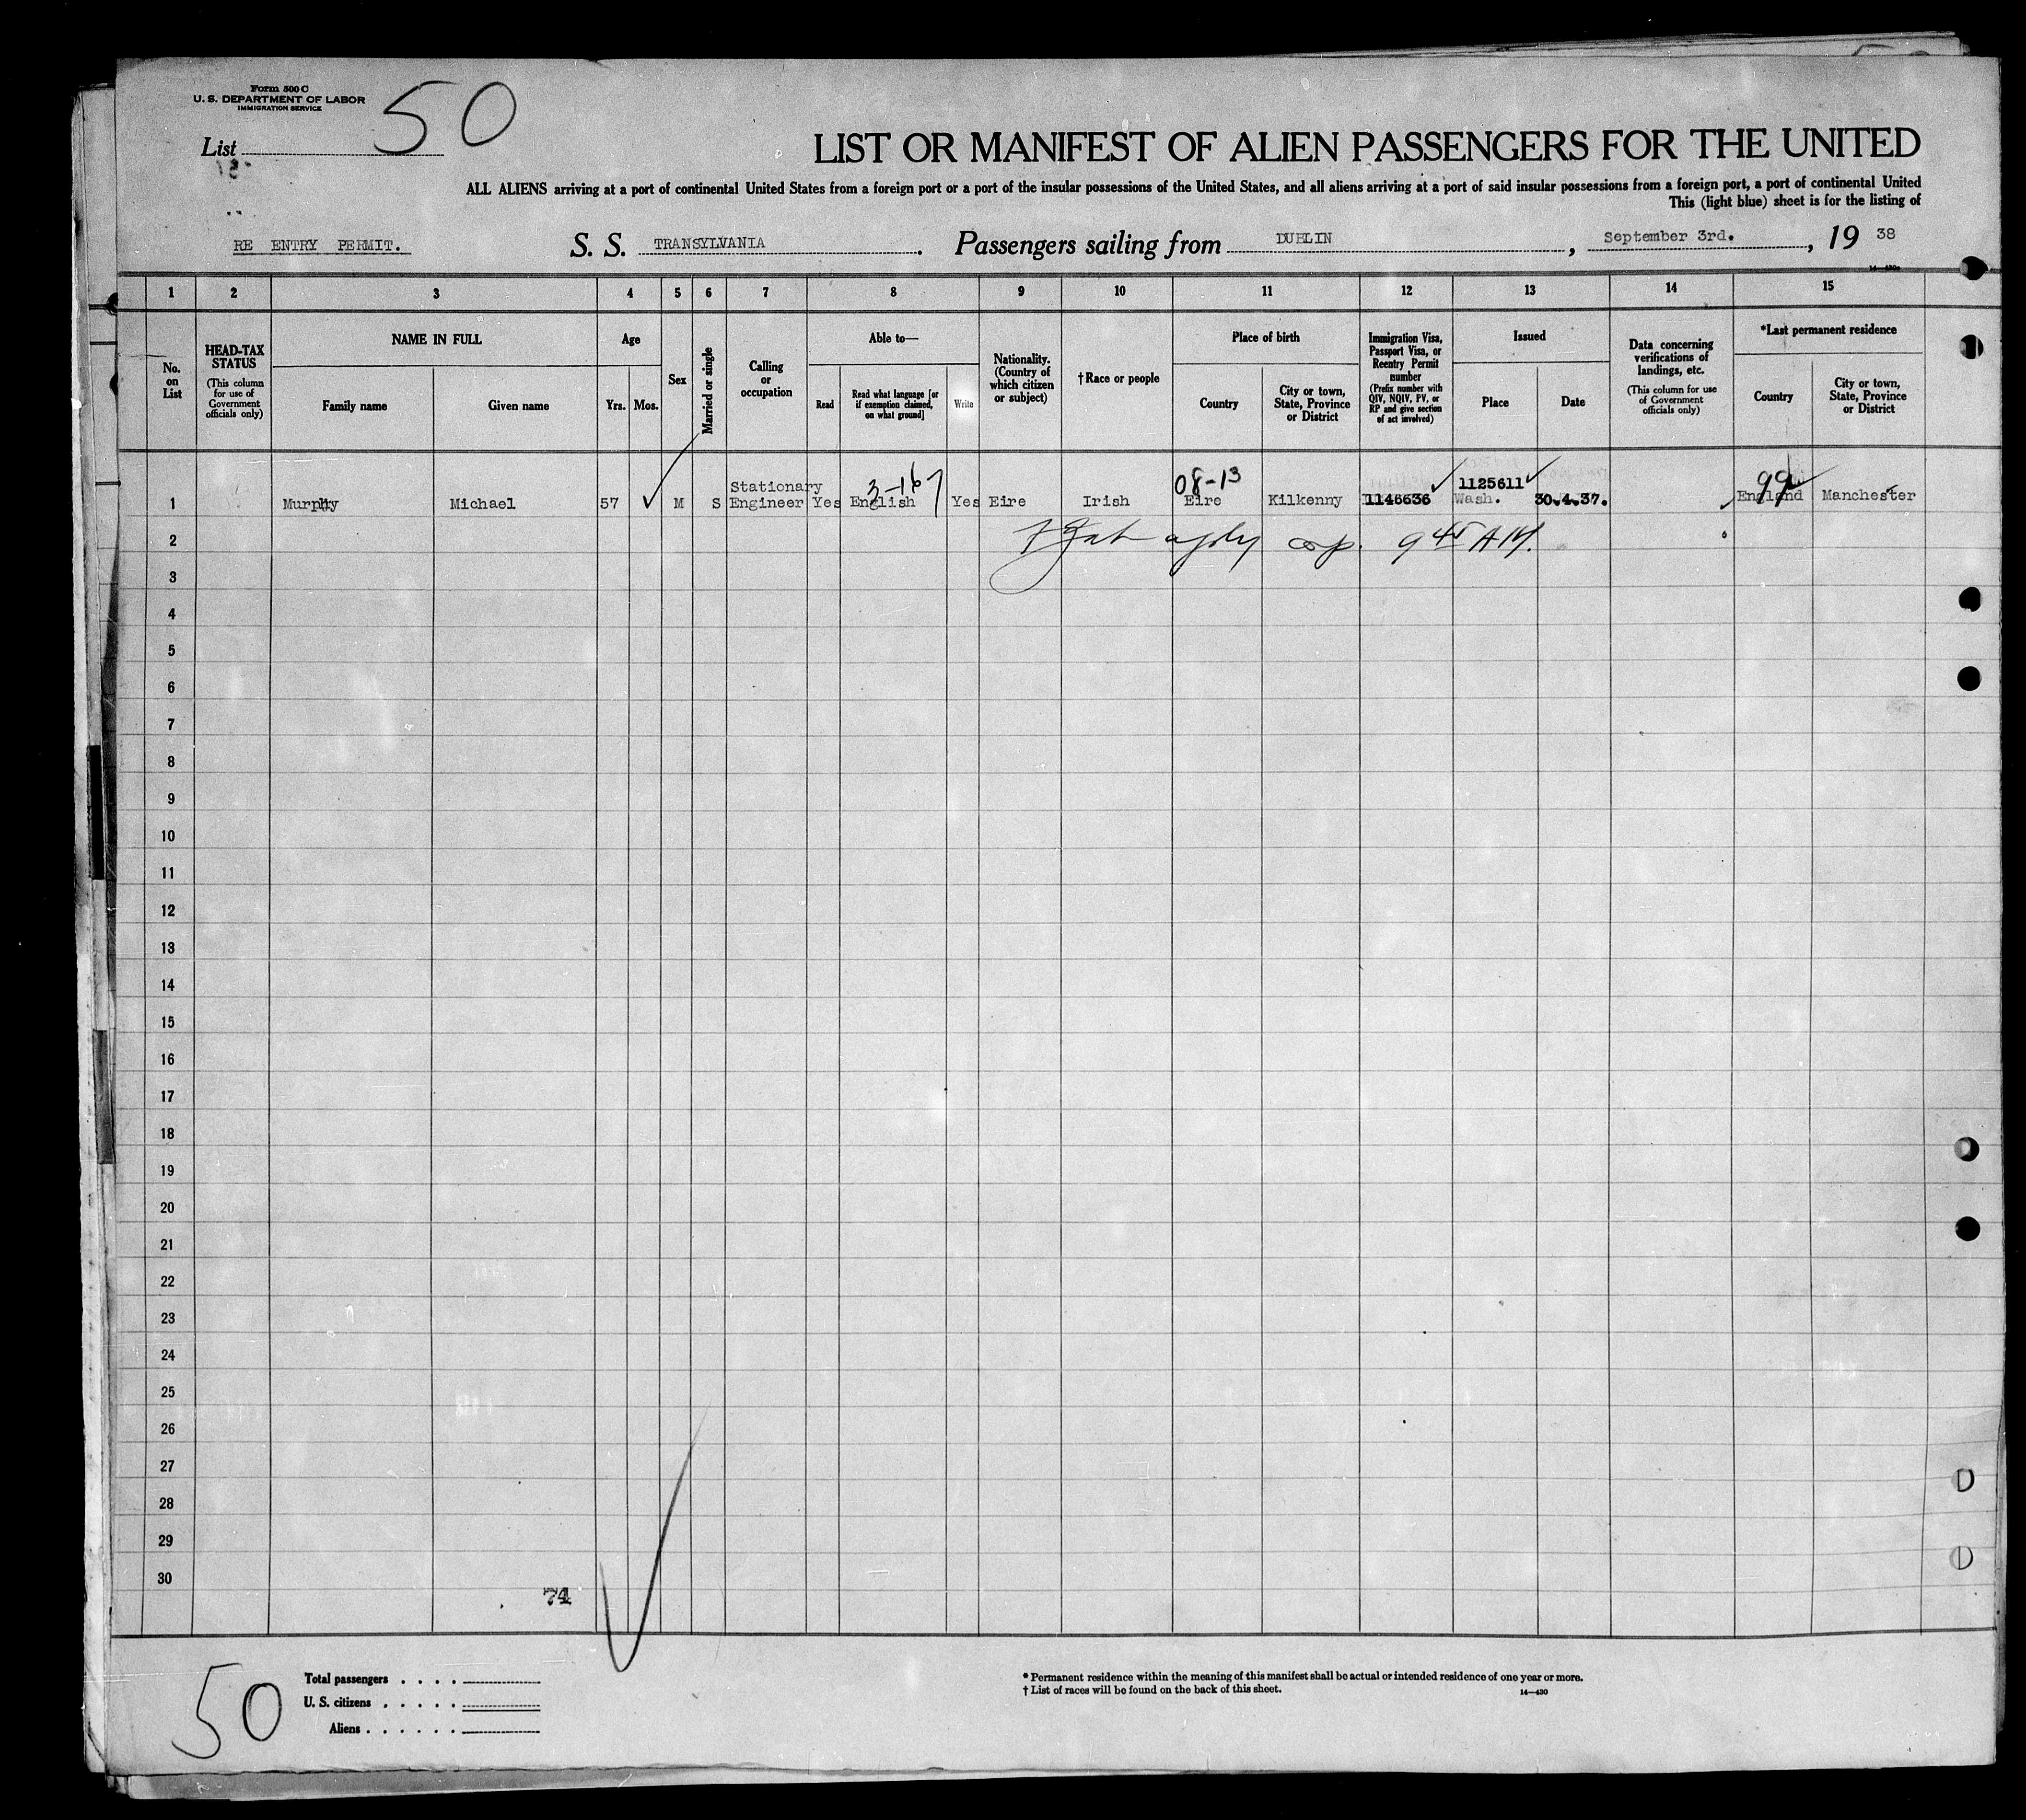 Form 500 C
U. S. DEPARTMENT OF LABOR
IMMIGRATION SERVICE
List 50
LIST OR MANIFEST OF ALIEN PASSENGERS FOR THE UNITED
ALL ALIENS arriving at a port of continental United States from a foreign port or a port of the insular possessions of the United States, and all aliens arriving at a port of said insular possessions from a foreign port, a port of continental United
This (light blue) sheet is for the listing of
RE ENTRY PERMIT. S. S. TRANSYLVANIA. Passengers sailing from DUBLIN, September 3rd., 19 38
1 2 3 4 5 6 7 8 9 10 11 12 13 14 15
No. on List
HEAD-TAX STATUS
(This column for use of Government officials only)
NAME IN FULL
Family name Given name
Age
Yrs. Mos.
Sex
Married or single
Calling or occupation
Able to—
Read
Read what language [or if exemption claimed, on what ground]
Write
Nationality. (Country of which citizen or subject)
†Race or people
Place of birth
Country
City or town, State, Province or District
Immigration Visa, Passport Visa, or Reentry Permit number
(Prefix number with QIV, NQIV, PV, or RP and give section of act involved)
Issued
Place Date
Data concerning verifications of landings, etc.
(This column for use of Government officials only)
*Last permanent residence
Country
City or town, State, Province or District
3-167 08-13 1125611 99
1 Murphy Michael 57 M S Stationary Engineer Yes English Yes Eire Irish Eire Kilkenny 1146636 Wash. 30.4.37. England Manchester
2 9 45 AM.
3
4
5
6
7
8
9
10
11
12
13
14
15
16
17
18
19
20
21
22
23
24
25
26
27
28
29
30
74
50
Total passengers . . . .
U. S. citizens . . . . .
Aliens . . . . . .
* Permanent residence within the meaning of this manifest shall be actual or intended residence of one year or more.
† List of races will be found on the back of this sheet.
14—430